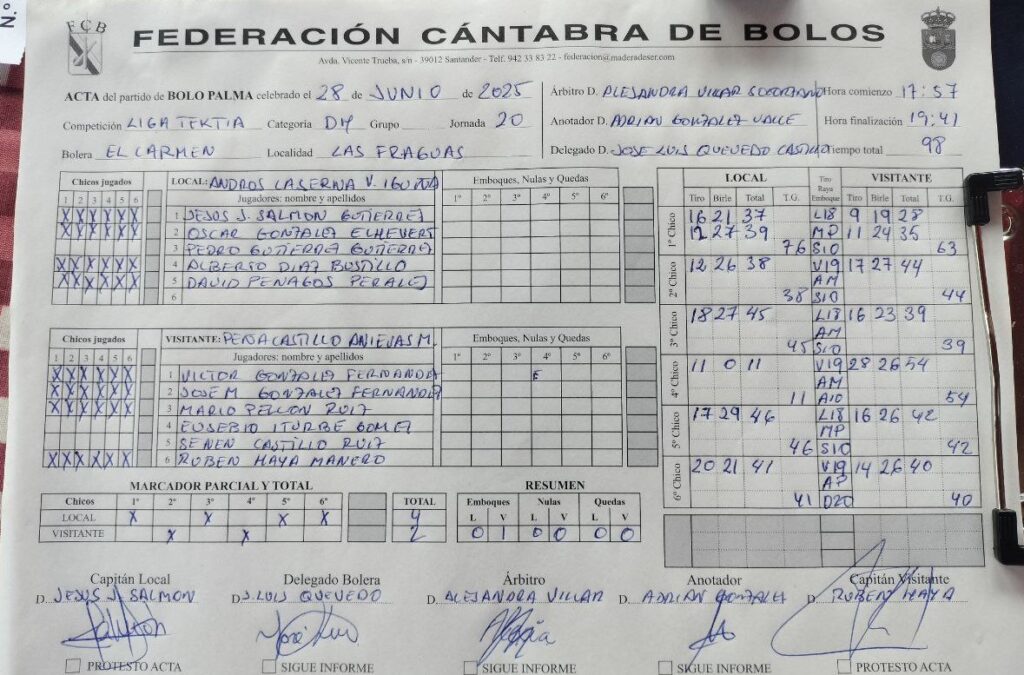 N.º
FCB
FEDERACIÓN CÁNTABRA DE BOLOS
Avda. Vicente Trueba, s/n - 39012 Santander - Telf. 942 33 83 22 - federacion@maderadeser.com
ACTA del partido de BOLO PALMA celebrado el 28 de JUNIO de 2025
Competición LIGA TEKTIA Categoría DH Grupo Jornada 20
Bolera EL CARMEN Localidad LAS FRAGUAS
Árbitro D. ALEJANDRA VILLAR Hora comienzo 17:57
Anotador D. ADRIAN GONZALEZ VALLE Hora finalización 19:41
Delegado D. JOSE LUIS QUEVEDO CASTILLO Tiempo total 98
Chicos jugados LOCAL: ANDROS LASERNA V. IGUÑA Emboques, Nulas y Quedas
1 2 3 4 5 6 Jugadores: nombre y apellidos 1º 2º 3º 4º 5º 6º
X X X X X X 1 JESUS J. SALMON GUTIERREZ
X X X X X X 2 OSCAR GONZALEZ ECHEVERRI
3 PEDRO GUTIERREZ GUTIERREZ
X X X X X X 4 ALBERTO DIAZ BUSTILLO
X X X X X X 5 DAVID PENAGOS PERALES
6
Chicos jugados VISITANTE: PEÑACASTILLO ANIEVAS M. Emboques, Nulas y Quedas
1 2 3 4 5 6 Jugadores: nombre y apellidos 1º 2º 3º 4º 5º 6º
X X X X X X 1 VICTOR GONZALEZ FERNANDEZ E
X X X X X X 2 JOSE M GONZALEZ FERNANDEZ
X X X X X X 3 MARIO PELLON RUIZ
4 EUSEBIO ITURBE GOMEZ
5 SENEN CASTILLO RUIZ
X X X X X X 6 RUBEN HAYA MANERO
LOCAL Tiro Raya Emboque VISITANTE
Tiro Birle Total T.G. Tiro Birle Total T.G.
1º Chico 16 21 37 L18 9 19 28
12 27 39 MP 11 24 35
76 S10 63
2º Chico 12 26 38 V19 17 27 44
AM
38 S10 44
3º Chico 18 27 45 L18 16 23 39
AM
45 S10 39
4º Chico 11 0 11 V19 28 26 54
AM
11 A10 54
5º Chico 17 29 46 L18 16 26 42
MP
46 S10 42
6º Chico 20 21 41 V19 14 26 40
AP
41 D20 40
MARCADOR PARCIAL Y TOTAL
Chicos 1º 2º 3º 4º 5º 6º TOTAL
LOCAL X X X X 4
VISITANTE X X 2
RESUMEN
Emboques Nulas Quedas
L V L V L V
0 1 0 0 0 0
Capitán Local Delegado Bolera Árbitro Anotador Capitán Visitante
D. JESUS J. SALMON D. J. LUIS QUEVEDO D. ALEJANDRA VILLAR D. ADRIAN GONZALEZ D. RUBEN HAYA
PROTESTO ACTA SIGUE INFORME SIGUE INFORME SIGUE INFORME PROTESTO ACTA